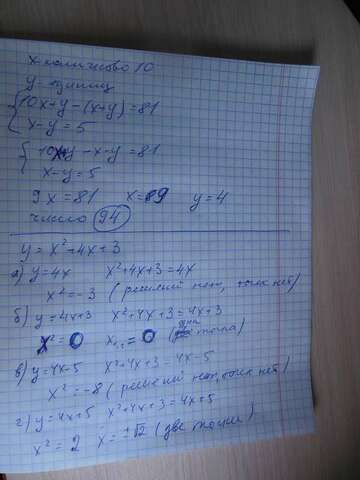 x - количество 10
y - единиц
{10x+y-(x+y)=81
x-y=5
{10x+y-x-y=81
x-y=5
9x=81 x=9 y=4
число 94
y=x²+4x+3
а) y=4x x²+4x+3=4x
x²=-3 (решений нет, точек нет)
б) y=4x+3 x²+4x+3=4x+3
x²=0 x₁,₂=0 (одна точка)
в) y=4x-5 x²+4x+3=4x-5
x²=-8 (решений нет, точек нет)
г) y=4x+5 x²+4x+3=4x+5
x²=2 x=±√2 (две точки)